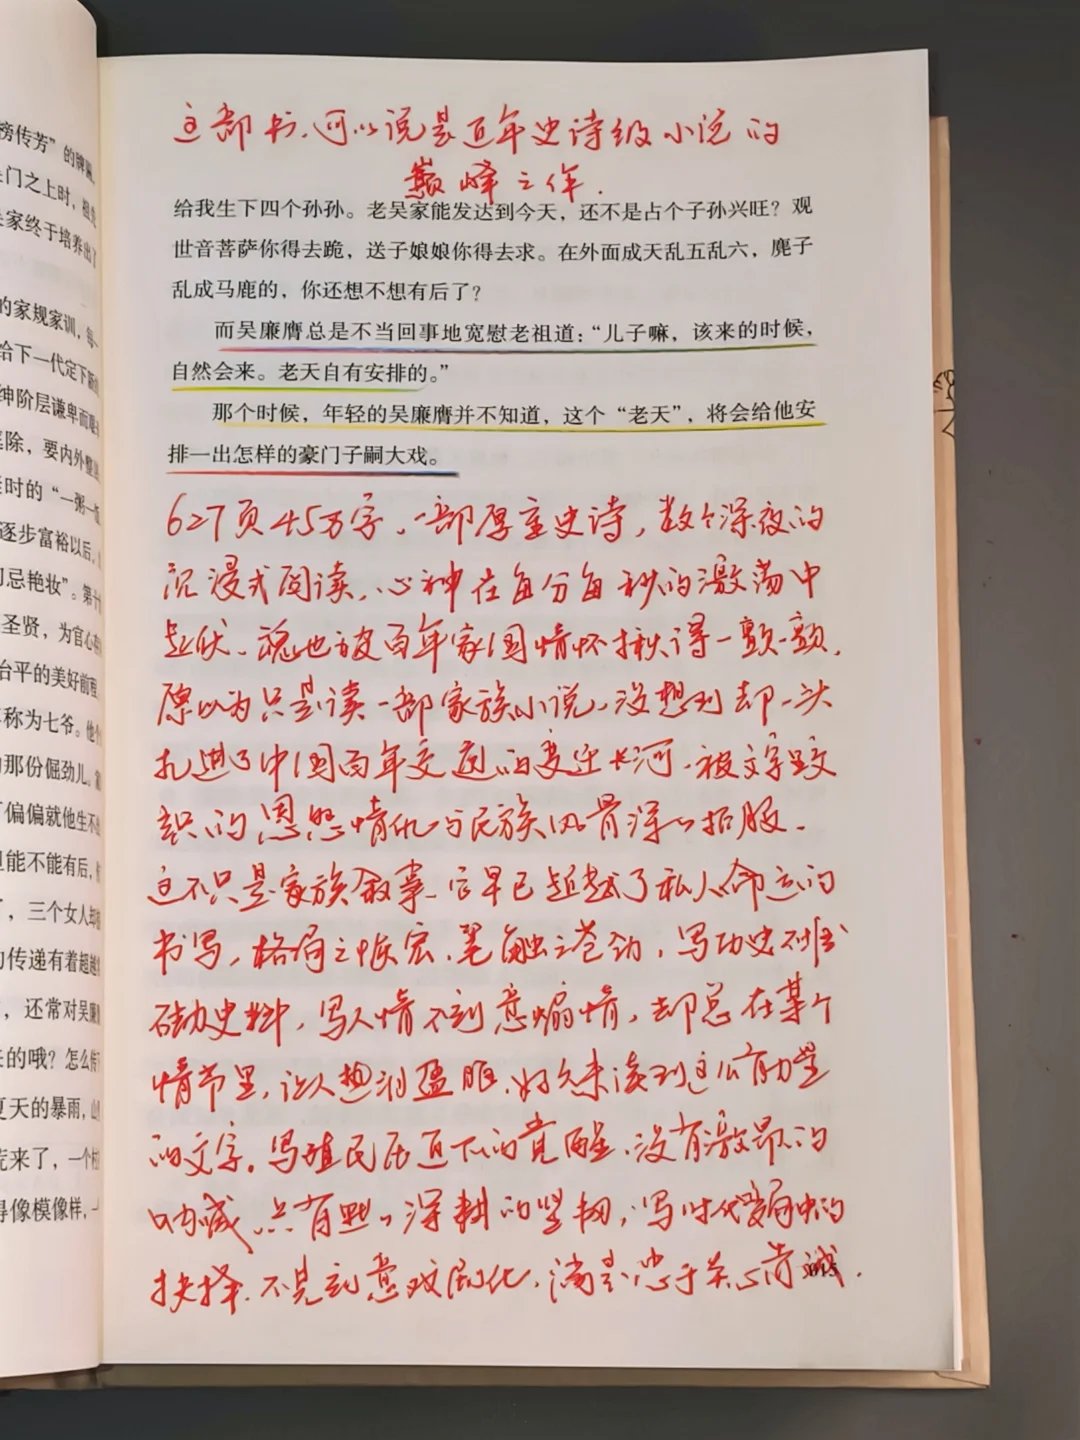 榜传芳”的牌匾
门之上时，祖
家终于培养出了
的家规家训，每一
给下一代定下
绅阶层谦卑而
庭除，要内外整
时的“一粥一
逐步富裕以后
忌艳妆”。第十
圣贤，为官心
台平的美好前
称为七爷。他
那份倔劲儿。
偏偏就他生不
但能不能有后，
，三个女人却
传递有着超越
，还常对吴廉
来的哦？怎么传
夏天的暴雨，山
荒来了，一个
得像模像样，一
这部书，可以说是近年史诗级小说的
巅峰之作.
给我生下四个孙孙。老吴家能发达到今天，还不是占个子孙兴旺？观
世音菩萨你得去跪，送子娘娘你得去求。在外面成天乱五乱六，麂子
乱成马鹿的，你还想不想有后了？
而吴廉膺总是不当回事地宽慰老祖道：“儿子嘛，该来的时候，
自然会来。老天自有安排的。”
那个时候，年轻的吴廉膺并不知道，这个“老天”，将会给他安
排一出怎样的豪门子嗣大戏。
627页45万字，一部厚重史诗，数个深夜的
沉浸式阅读，心神在每分每秒的激荡中
起伏、魂也被百年家国情怀揪得一颤一颤.
原以为只是读一部家族小说，没想到却一头
扎进了中国百年交迭的变迁长河，被文字交
织的恩怨情仇与民族风骨深深折服.
这不只是家族叙事，它早已超越了私人命运的
书写，格局之恢宏，笔触之苍劲，写历史不堆
砌史料，写人情不刻意煽情，却总在某个
情节里，让人想泪盈眶，好久未读到这么有力量
的文字。写殖民压迫下的觉醒，没有激昂的
呐喊，只有默默深耕的坚韧，写时代变局中的
抉择，不见刻意戏剧化，满是忠于本心的赤诚.
015